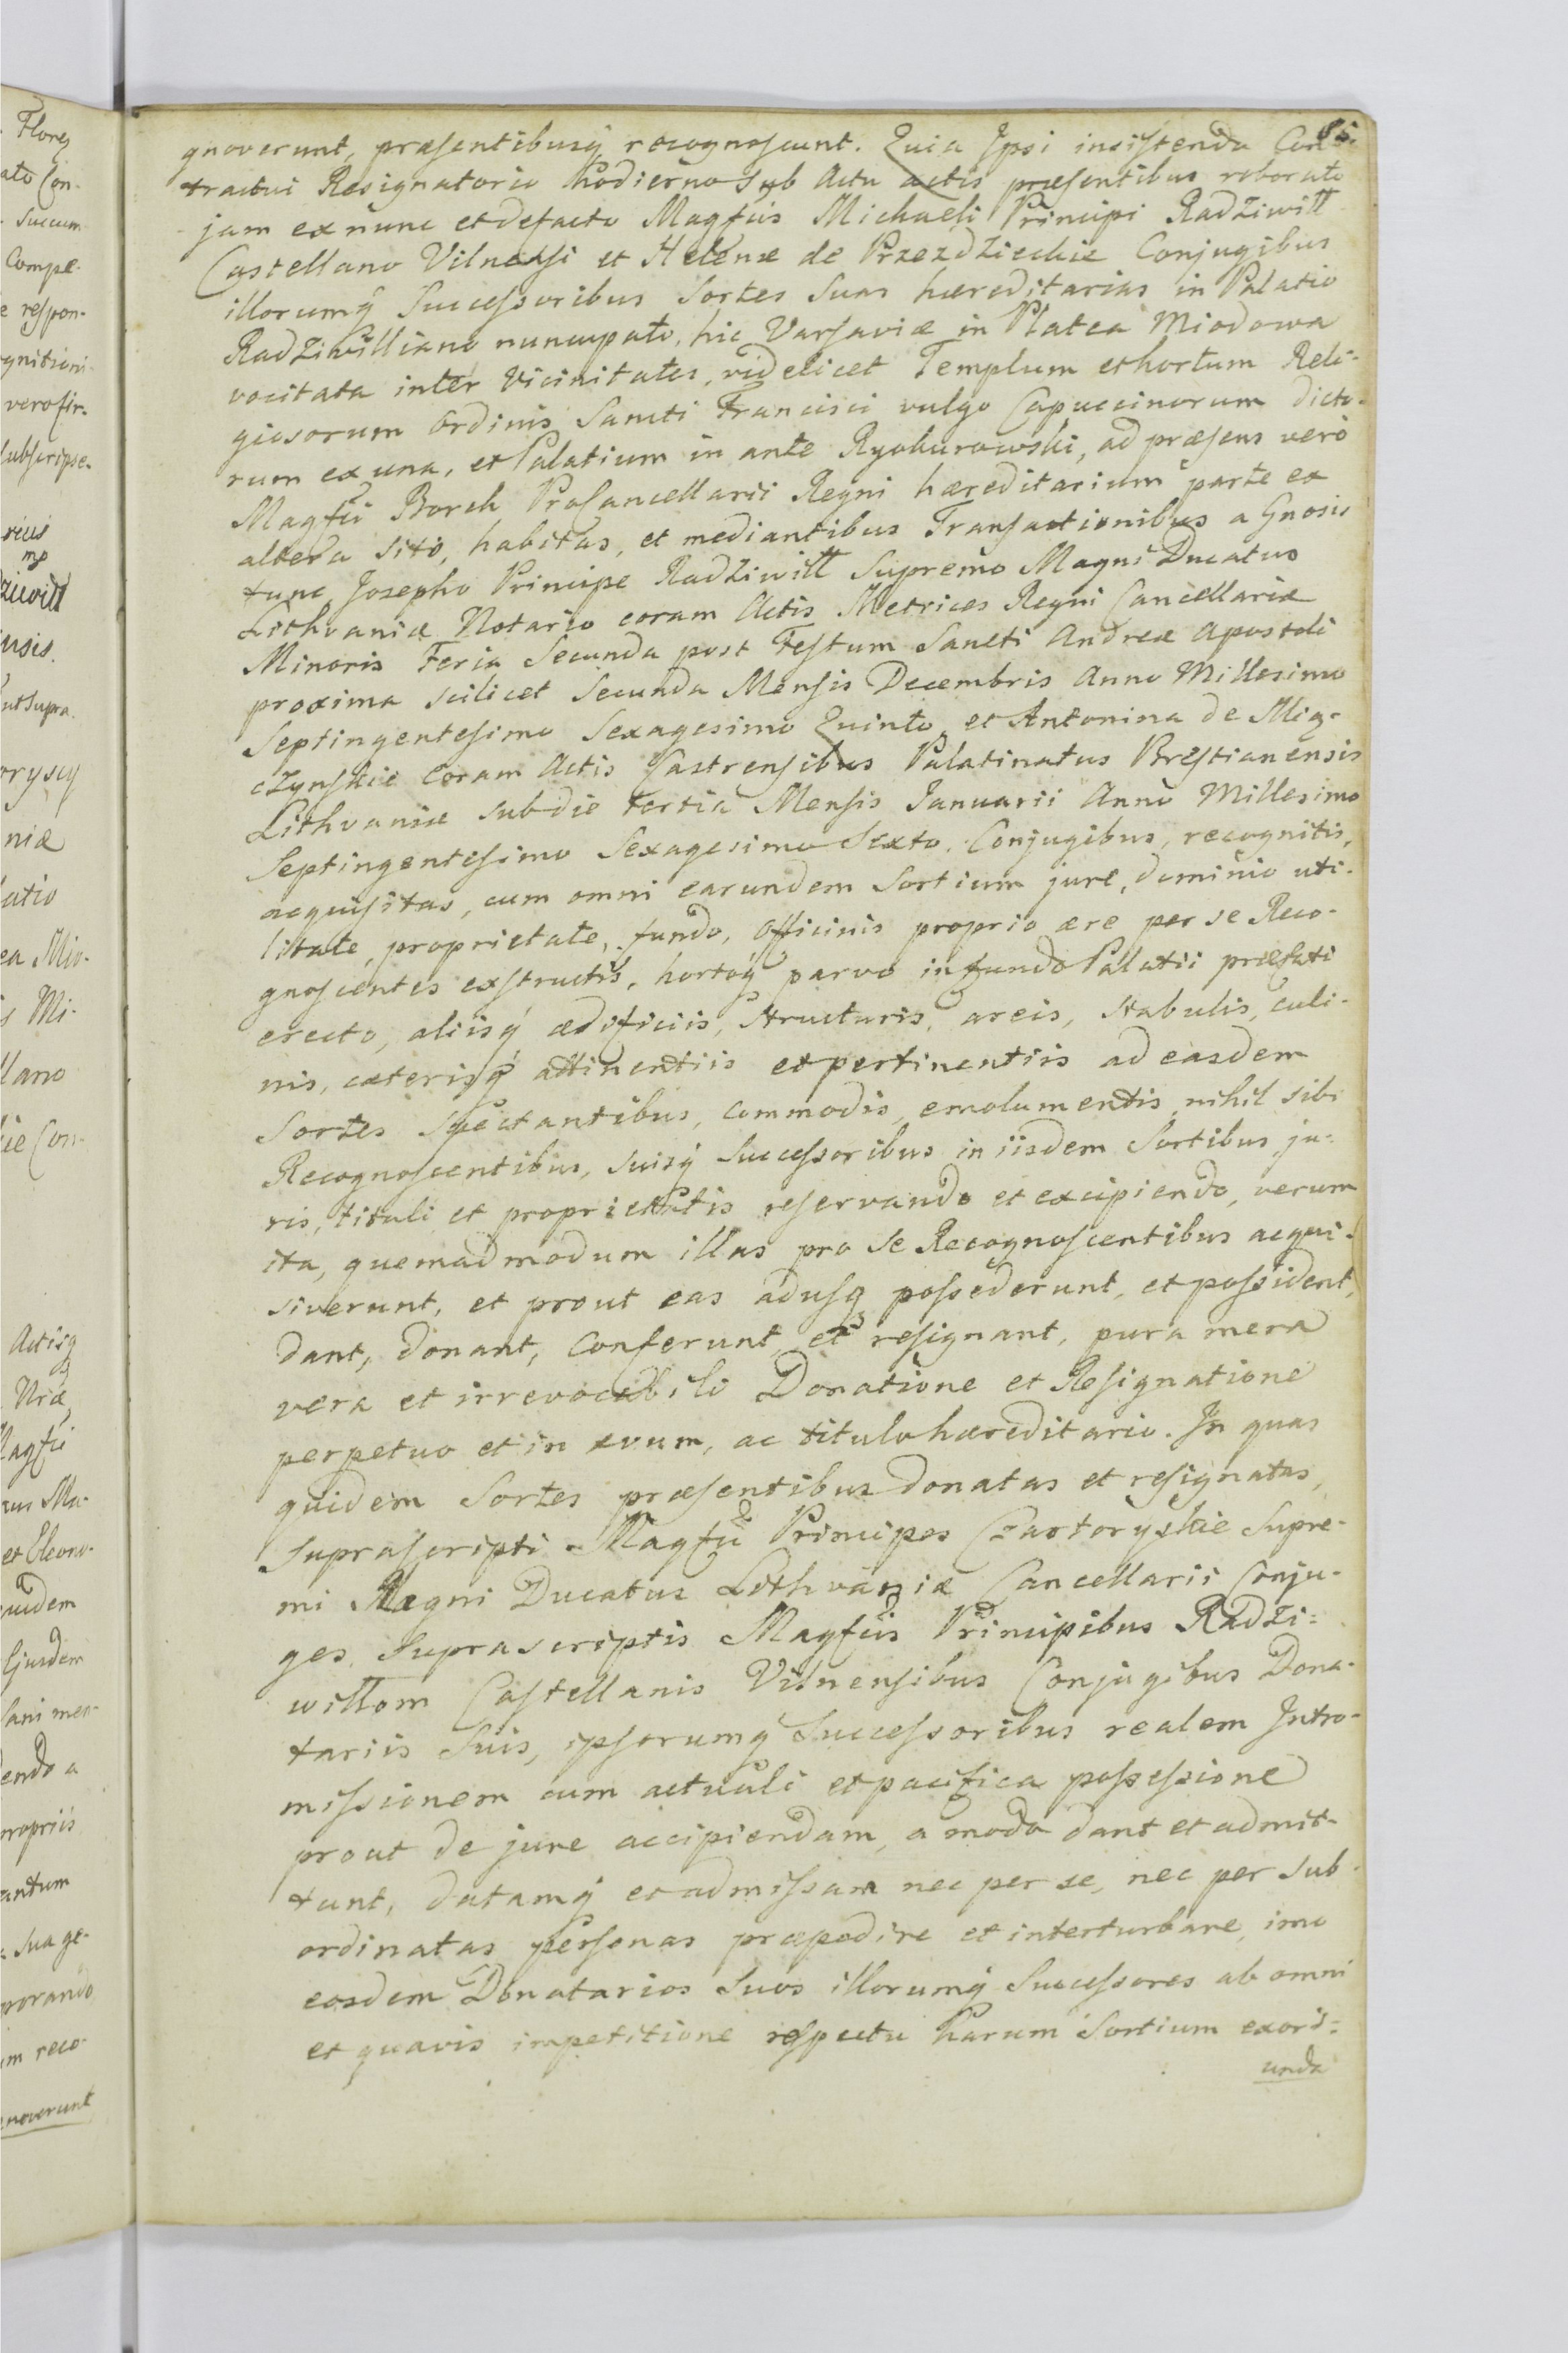 85.
gnoverunt, præsentibusq́ recognoscunt. Quia Ipsi insistendo Con-
tractui Resignatorio hodierno sub Actu actis præsentibus roborato
jam ex nunc et defacto Magfcis Michaeli Principi Radziwiłł
Castellano Vilnensi et Helenæ de Przezdzieckie Conjugibus
illorumq́ Successoribus Sortes Suas hæreditarias in Palatio
Radziwilliano nuncupato, hic Varsaviæ in Platea Miodowa
vocitata inter Vicinitates, videlicet Templum et hortum Reli-
giosorum Ordinis Sancti Francisci vulgo Capuccinorum dicto-
rum ex una, et Palatium in ante Ryokurowski, ad præsens vero
Magfci Borch Procancellarii Regni hæreditarium parte ex
altera sito, habitas, et mediantibus Transactionibus a Gnosis
tunc Josepho Principe Radziwiłł Supremo Magni Ducatus
Lithvaniæ Notario coram Actis Metrices Regni Cancellariæ
Minoris Feria Secunda post Festum Sancti Andreæ Apostoli
proxima scilicet Secunda Mensis Decembris Anno Millesimo
Septingentesimo Sexagesimo Quinto, et Antonina de Mią-
czynskie Coram Actis Castrensibus Palatinatus Brestianensis
Lithvaniæ sub die tertia Mensis Januarii Anno Millesimo
Septingentesimo Sexagesimo Sexto, Conjugibus, recognitis,
acquisitas, cum omni earundem Sortium jure, dominio uti-
litate, proprietate, fundo, Officinis proprio ære per se Reco-
gnoscentes exstructis, hortoq́ parvo in fundo Palatii præfati
erecto, aliisq́ ædificiis, structuris, areis, stabulis, culi-
nis, cæterisq́ attinentiis et pertinentiis ad easdem
Sortes spectantibus, commodis, emolumentis, nihil sibi
Recognoscentibus, suisq́ Successoribus in iisdem Sortibus ju-
ris, tituli et proprietatis reservando et excipiendo, verum
ita, quemadmodum illas pro se Recognoscentibus acqui-
siverunt, et prout eas adusq possederunt, et possident,
dant, donant, Conferunt, et resignant, pura mera
vera et irrevocabili Donatione et Resignatione
perpetuo et in ævum, ac titulo hæreditario. In quas
quidem Sortes præsentibus donatas et resignatas,
suprascripti Magfci Principes Czartoryskie Supre-
mi Magni Ducatus Lithvaniæ Cancellarii Conju-
ges, Suprascriptis Magfcis Principibus Radzi-
wiłłom Castellanis Vilnensibus Conjugibus Dona-
tariis Suis, ipsorumq́ Successoribus realem Intro-
missionem cum actuali et pacifica possessione
prout de jure accipiendam, a modo dant et admit-
tunt, datamq́ et admissam nec per se, nec per sub-
ordinatas personas præpedire et interturbare, imo
eosdem Donatarios Suos illorumq́ Successores ab omni
et quavis impetitione respectu harum Sortium exori-
unda